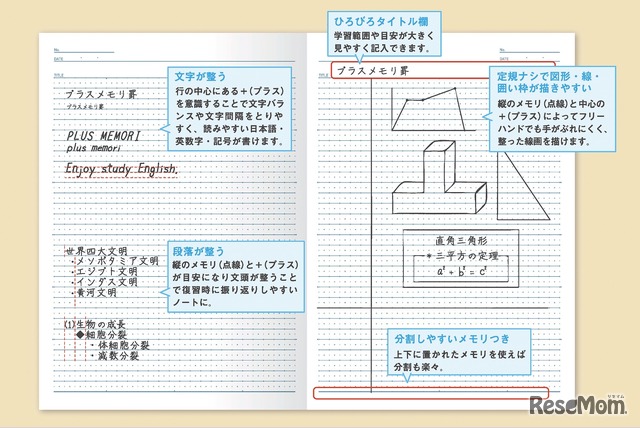 No.
DATE
TITLE
プラスメモリ罫
プラスメモリ罫
PLUS MEMORI
plus memori
Enjoy study English.
文字が整う
行の中心にある+(プラス)
を意識することで文字バラ
ンスや文字間隔をとりや
すく、読みやすい日本語・
英数字・記号が書けます。
世界四大文明
・メソポタミア文明
・エジプト文明
・インダス文明
・黄河文明
段落が整う
縦のメモリ(点線)と+(プラス)
が目安になり文頭が整うこと
で復習時に振り返りしやすい
ノートに。
(1)生物の成長
◆細胞分裂
・体細胞分裂
・減数分裂
ひろびろタイトル欄
学習範囲や目安が大きく
見やすく記入できます。
No.
DATE
TITLE
プラスメモリ罫
定規ナシで図形・線・
囲い枠が描きやすい
縦のメモリ(点線)と中心の
+(プラス)によってフリー
ハンドでも手がぶれにくく、
整った線画を描けます。
直角三角形
*三平方の定理
a²+b²=c²
分割しやすいメモリつき
上下に置かれたメモリを使えば
分割も楽々。
リセマム
ReseMom.